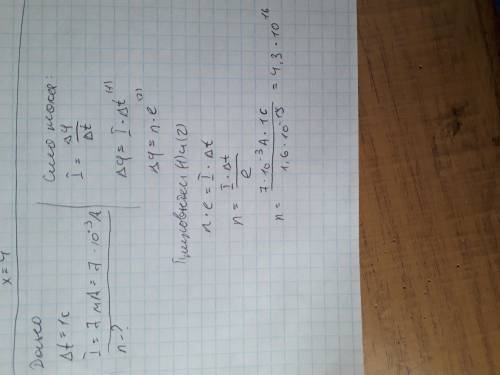 x=4
Дано
Δt=1с
I=7 мА=7·10⁻³А
n-?
Сила тока:
I = Δq/Δt
Δq=I·Δt (1)
Δq=n·e (2)
(1) и (2)
n·e=I·Δt
n= I·Δt/e
n= 7·10⁻³А·1с/1,6·10⁻¹⁹ = 4,3·10¹⁶